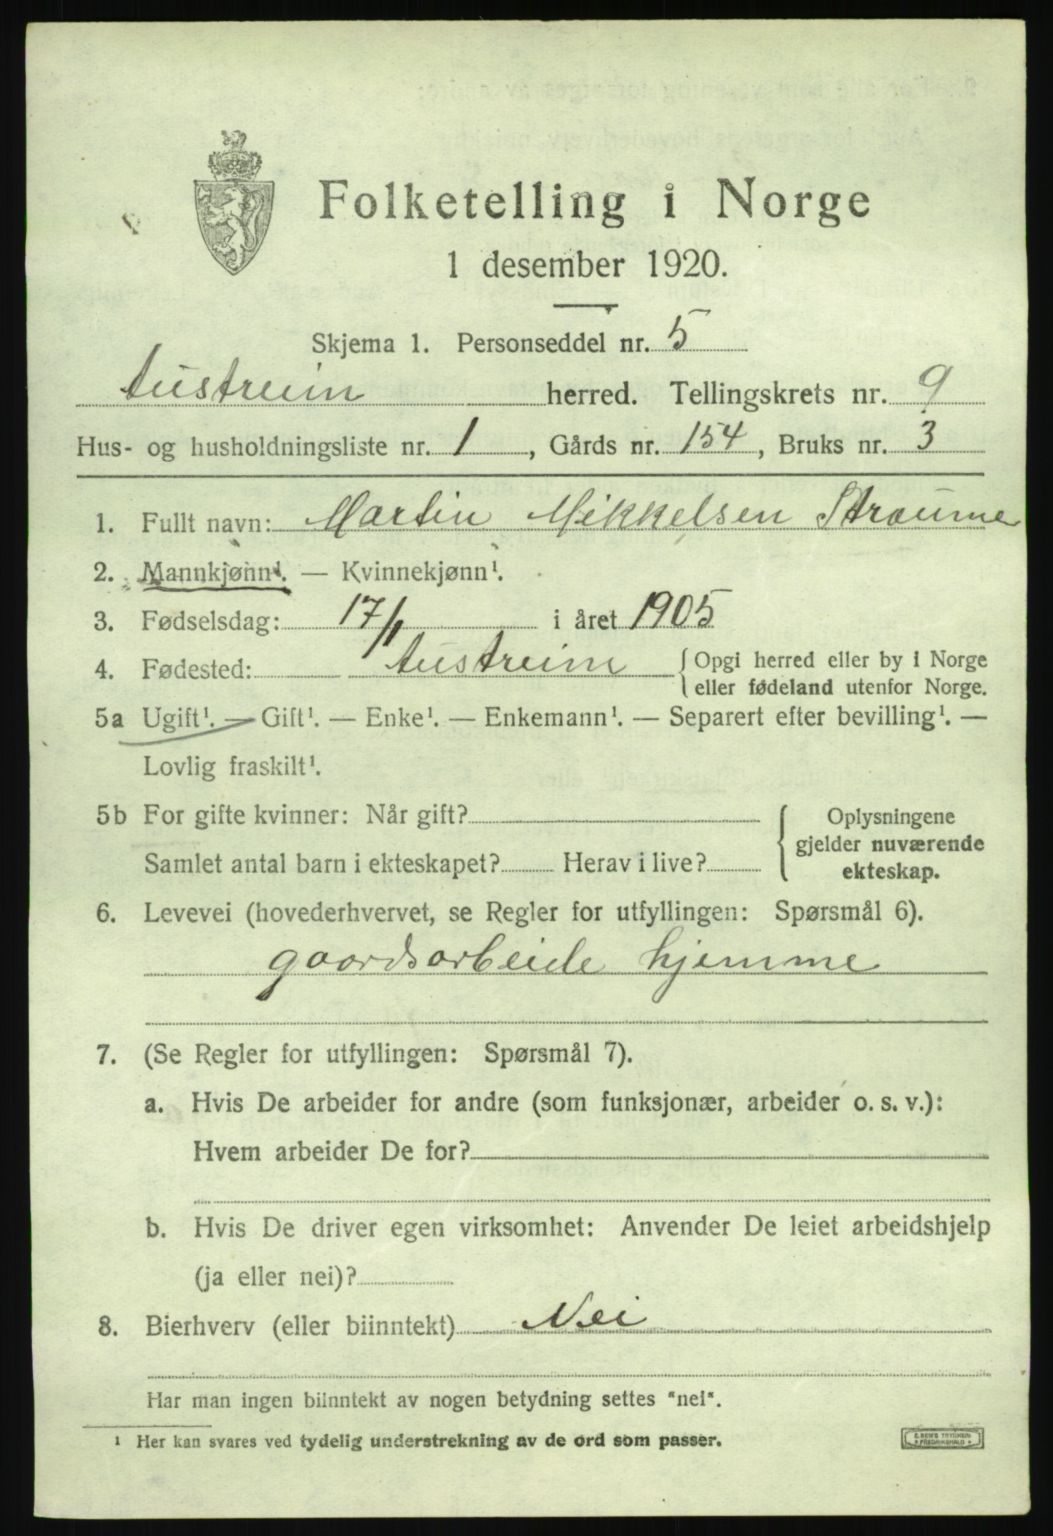 Folketelling i Norge
1 desember 1920.
Skjema 1. Personseddel nr. 5
Austreim herred. Tellingskrets nr. 9
Hus- og husholdningsliste nr. 1, Gårds nr. 154, Bruks nr. 3
1. Fullt navn: Martin Mikkelsen Straume
2. Mannkjønn¹. — Kvinnekjønn¹.
3. Fødselsdag: 17/1 i året 1905
4. Fødested: Austreim {Opgi herred eller by i Norge
eller fødeland utenfor Norge.
5a Ugift¹. — Gift¹. — Enke¹. — Enkemann¹. — Separert efter bevilling¹. —
Lovlig fraskilt¹.
5b For gifte kvinner: Når gift?
Samlet antal barn i ekteskapet? Herav i live?
{ Oplysningene
gjelder nuværende
ekteskap.
6. Levevei (hovederhvervet, se Regler for utfyllingen: Spørsmål 6).
gaardsarbeide hjemme
7. (Se Regler for utfyllingen: Spørsmål 7).
a. Hvis De arbeider for andre (som funksjonær, arbeider o. s. v.):
Hvem arbeider De for?
b. Hvis De driver egen virksomhet: Anvender De leiet arbeidshjelp
(ja eller nei)?
8. Bierhverv (eller biinntekt) Nei
Har man ingen biinntekt av nogen betydning settes "nei".
¹ Her kan svares ved tydelig understrekning av de ord som passer.